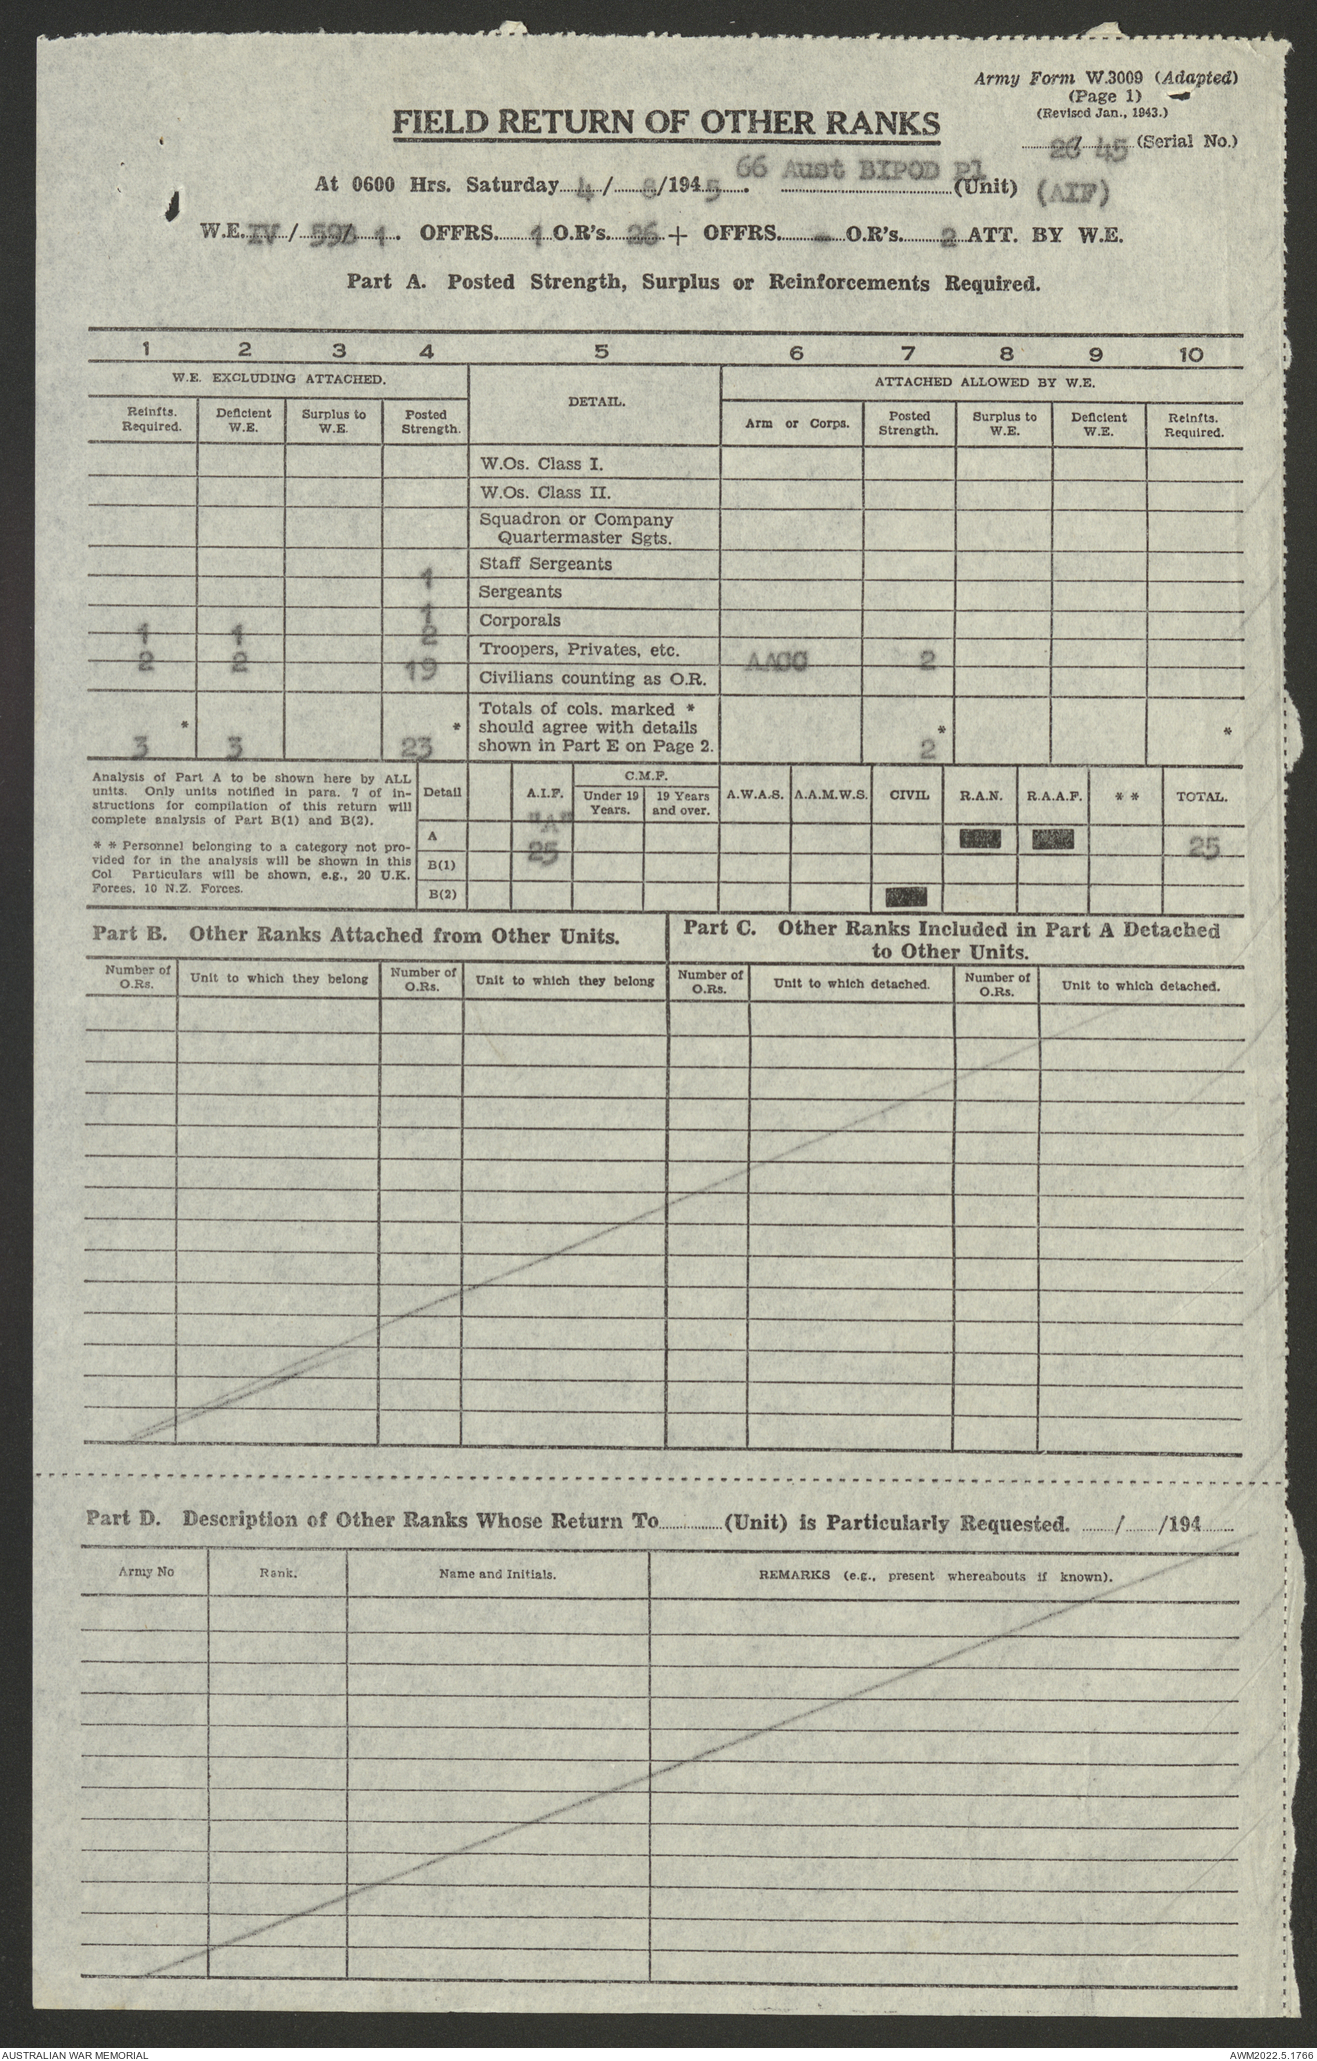 Army Form W.3009 (Adapted)
(Page 1)
(Revised Jan., 1943.)
FIELD RETURN OF OTHER RANKS
26/45 (Serial No.)
66 Aust BIPOD Pl
At 0600 Hrs. Saturday 4/8/1945. (Unit) (AIF)
W.E. IV / / 1. OFFRS. 1 O.R's. 26 + OFFRS. - O.R's. 2 ATT. BY W.E.
Part A. Posted Strength, Surplus or Reinforcements Required.
1 2 3 4 5 6 7 8 9 10
W.E. EXCLUDING ATTACHED. DETAIL. ATTACHED ALLOWED BY W.E.
Reinfts. Required. Deficient W.E. Surplus to W.E. Posted Strength. Arm or Corps. Posted Strength. Surplus to W.E. Deficient W.E. Reinfts. Required.
W.Os. Class I.
W.Os. Class II.
Squadron or Company
Quartermaster Sgts.
Staff Sergeants
1
Sergeants
1
Corporals
1 1 2
Troopers, Privates, etc.
2 2 19 AACC 2
Civilians counting as O.R.
Totals of cols. marked *
* * should agree with details * *
3 3 23 shown in Part E on Page 2. 2
Analysis of Part A to be shown here by ALL
units. Only units notified in para. 7 of in-
structions for compilation of this return will
complete analysis of Part B(1) and B(2).
* * Personnel belonging to a category not pro-
vided for in the analysis will be shown in this
Col Particulars will be shown, e.g., 20 U.K.
Forces, 10 N.Z. Forces.
Detail A.I.F. C.M.F. Under 19 Years. 19 Years and over. A.W.A.S. A.A.M.W.S. CIVIL R.A.N. R.A.A.F. * * TOTAL.
"A"
A 25 25
B(1)
B(2)
Part B. Other Ranks Attached from Other Units.
Number of O.Rs. Unit to which they belong Number of O.Rs. Unit to which they belong
Part C. Other Ranks Included in Part A Detached
to Other Units.
Number of O.Rs. Unit to which detached. Number of O.Rs. Unit to which detached.
Part D. Description of Other Ranks Whose Return To (Unit) is Particularly Requested. / /194
Army No Rank. Name and Initials. REMARKS (e.g., present whereabouts if known).
AUSTRALIAN WAR MEMORIAL
AWM2022.5.1766